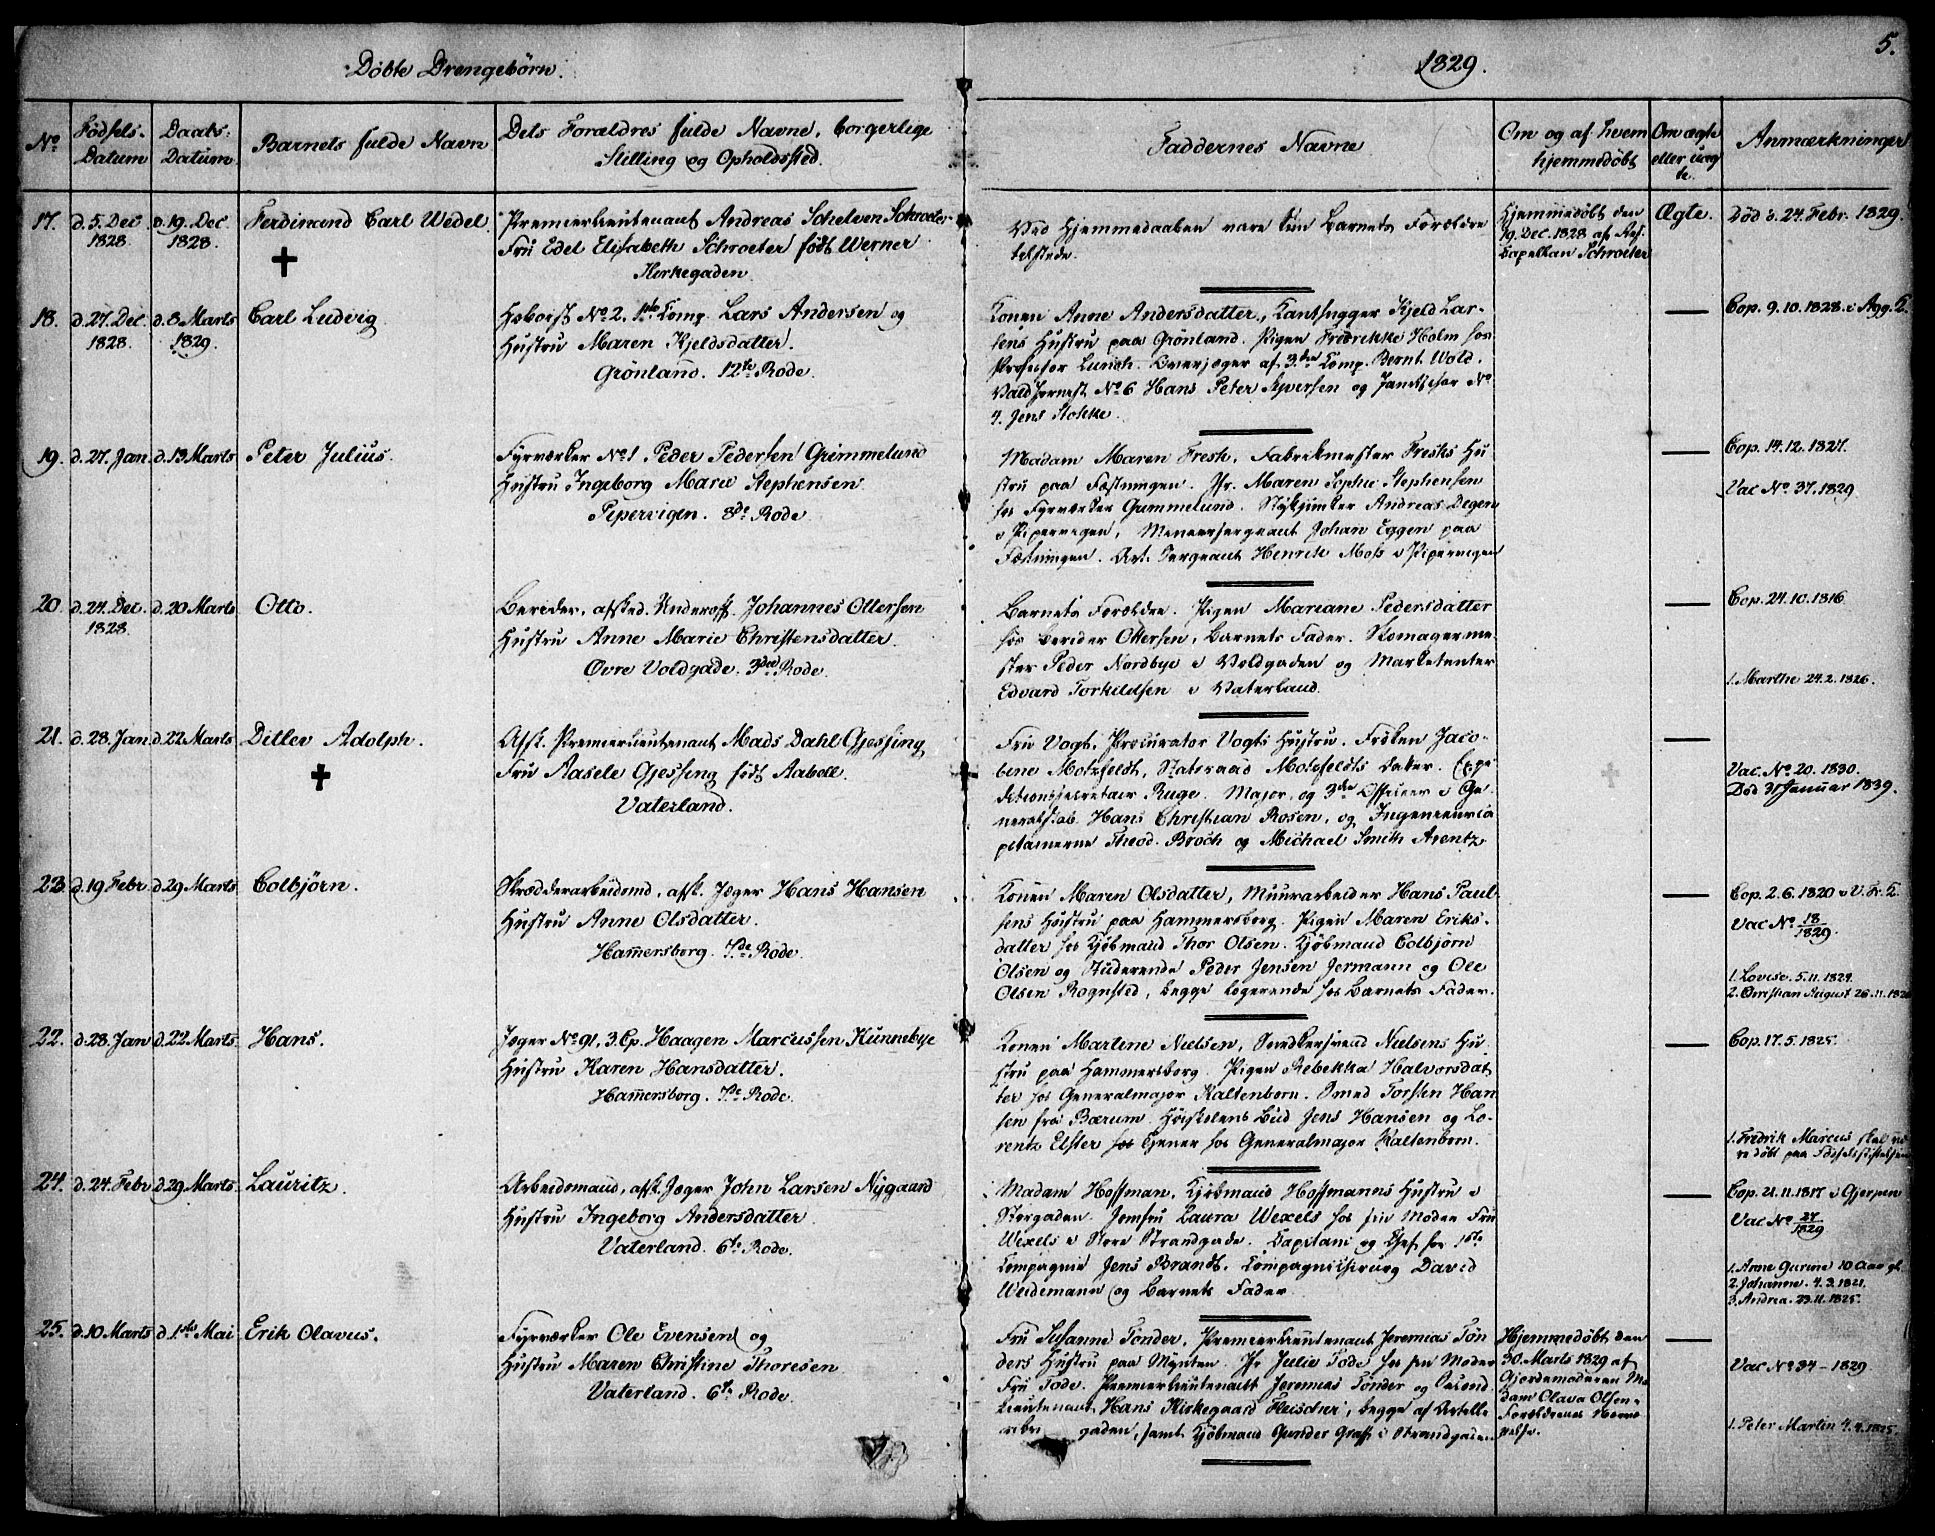 Døbte Drengebørn.
1829.
5.
No
Fødsels-
Datum
Daabs-
Datum
Barnets fulde Navn
Dets Forældres fulde Navne, borgerlige
Stilling og Opholdssted.
Faddernes Navne
Om og af hvem
hjemmedøbt
Om ægte
eller uæg
te.
Anmærkninger
17.
d. 5. Dec
1828
d. 19. Dec
1828.
Ferdinand Carl Wedel
Premierlieutenant Andreas Schelven Schroeter
Fru Edel Elisabeth Schroeter født Werner
Kirkegaden
Ved Hjemmedaaben vare kun Barnets Forældre
tilstede.
Hjemmedøbt den
19. Dec. 1828 af Res.
Capellan Schroeter
Ægte.
Død d. 24. Febr. 1829.
18.
d. 27. Dec.
1828.
d. 8 Marts
1829.
Carl Ludvig
Hoboist No 2. 1ste Comp. Lars Andersen og
Hustru Maren Kjeldsdatter.
Grønland. 12te Rode.
Konen Anne Andersdatter, Kanthugger Kjeld Lar-
sens Hustru paa Grønland. Pigen Fredrikke Holm hos
Professor Lunch. Overjæger af 3die Comp. Bernt Wold.
Valdhornist No 6 Hans Peter Syversen og No
4. Jens Stokke.
Cop. 9.10.1828. i Agg. K.
19.
d. 27. Jan
d. 13 Marts
Peter Julius.
Fyrværker No 1. Peder Pedersen Grimmelund
Hustru Ingeborg Marie Stephensen
Pepervigen. 8de Rode
Madam Maren Fresk, Fabrikmester Fresks Hu
stru paa Fæstningen. Jfr. Maren Sophie Stephensen
hos Fyrværker Grimmelund. Stykjunker Andreas Degen
i Pipervigen, Mineersergeant Johan Eggen paa
Fæstningen. Art. Sergeant Henrik Mots i Pipervigen
Cop. 14.12.1827.
Vac No. 37. 1829
20.
d. 24. Dec.
1828.
d. 20 Marts
Otto.
Berider, afsked. Underoff. Johannes Ottersen
Hustru Anne Marie Christensdatter.
Øvre Voldgade. 3die Rode.
Barnets Forældre. Pigen Mariane Pedersdatter
hos Berider Ottersen, Barnets Fader. Skomagerme-
ster Peder Nordbye i Voldgaden og Marketenter
Edvard Torkildsen i Vaterland.
Cop. 24.10.1816.
1. Marthe 24.2.1826.
21.
d. 28. Jan
d. 22 Marts
Ditlev Adolph.
Afsk. Premierlieutenant Mads Dahl Gjessing
Fru Aasele Gjessing født Aabell.
Vaterland.
Fru Vogt, Procurator Vogts Hustru. Frøken Jaco-
bine Motzfeldt, Statsraad Motzfeldts Datter. Expe
ditionssecretair Ruge. Major og 3die Officeer i Ge
neralstab. Hans Christian Rosen, og Ingenieurca
pitainerne Theod. Broch og Michael Smith Arentz
Vac. No. 20. 1830.
Død 31 Januar 1839.
23
d. 19 Febr
d. 29 Marts
Colbjørn.
Skrædderarbeidsmd, afsk. Jæger Hans Hansen
Hustru Anne Olsdatter.
Hammersborg. 7de Rode.
Konen Maren Olsdatter, Muurarbeider Hans Paul-
sens Hustru paa Hammersborg. Pigen Maren Eriks-
datter hos Kjøbmand Thor Olsen. Kjøbmand Colbjørn
Olsen og Studerende Peder Jensen Jermann og Ole
Olsen Rognsted, begge logerende hos Barnets Fader.
Cop. 2.6.1820 i V. Fr. K.
Vac No 18/1829.
1. Lovise. 5.11.1829.
2. Christian August 26.11.182
22.
d. 28. Jan
d. 22 Marts
Hans.
Jæger No 91, 3. Cp. Haagen Marcussen Kunnebye
Hustru Karen Hansdatter.
Hammersborg. 7de Rode.
Konen Martine Nielsen, Snedkersvend Nielsens Hu-
stru paa Hammersborg. Pigen Rebekka Halvorsdat
ter hos Generalmajor Kaltenborn. Smed Torsten Han
sen fra Bærum. Høiskolens Bud Jens Hansen og Lo-
rentz Elster Tjener hos Generalmajor Kaltenborn.
Cop. 17.5.1825.
1. Fredrik Marcus skal væ
re døbt paa Fødselsstiftelsen
24.
d. 24. Febr
d. 29 Marts
Lauritz.
Arbeidsmand, afsk. Jæger John Larsen Nygaard
Hustru Ingeborg Andersdatter.
Vaterland. 6te Rode.
Madam Hoffman, Kjøbmand Hoffmanns Hustru i
Storgaden. Jomfru Laura Wexels hos sin Moder Fru
Wexels i Store Strandgade. Capitain og Chef for 1ste
Compagnie Jens Brandt. Compagniechirurg David
Weidemann og Barnets Fader.
Cop. 21.11.1817 i Gjerpen
Vac No 27/1829
1. Anne Gurine 10 Aar gl.
2. Johanne. 4.3.1821.
3. Andrea. 23.11.1825.
25.
d. 10 Marts
d. 1ste Mai
Erik Olavus.
Fyrværker Ole Evensen og
Hustru Maren Christine Thoresen
Vaterland. 6te Rode.
Fru Susanne Tønder, Premierlieutenant Jeremias Tøn
ders Hustru paa Mynten. Jfr Julie Tode hos sin Moder
Fru Tode. Premierlieutenant Jeremias Tønder og Second
lieutenant Hans Kirkegaard Fleischer, begge af Artille
ribr gaden, samt Kjøbmand Gunder Graff i Strandgaden
Hjemmedøbt den
30. Marts 1829 af
Gjordemoderen Ma
dam Olava Olsen
Forældrenes
Vac No 34 - 1829
1. Peter Martin 4.4.1825.